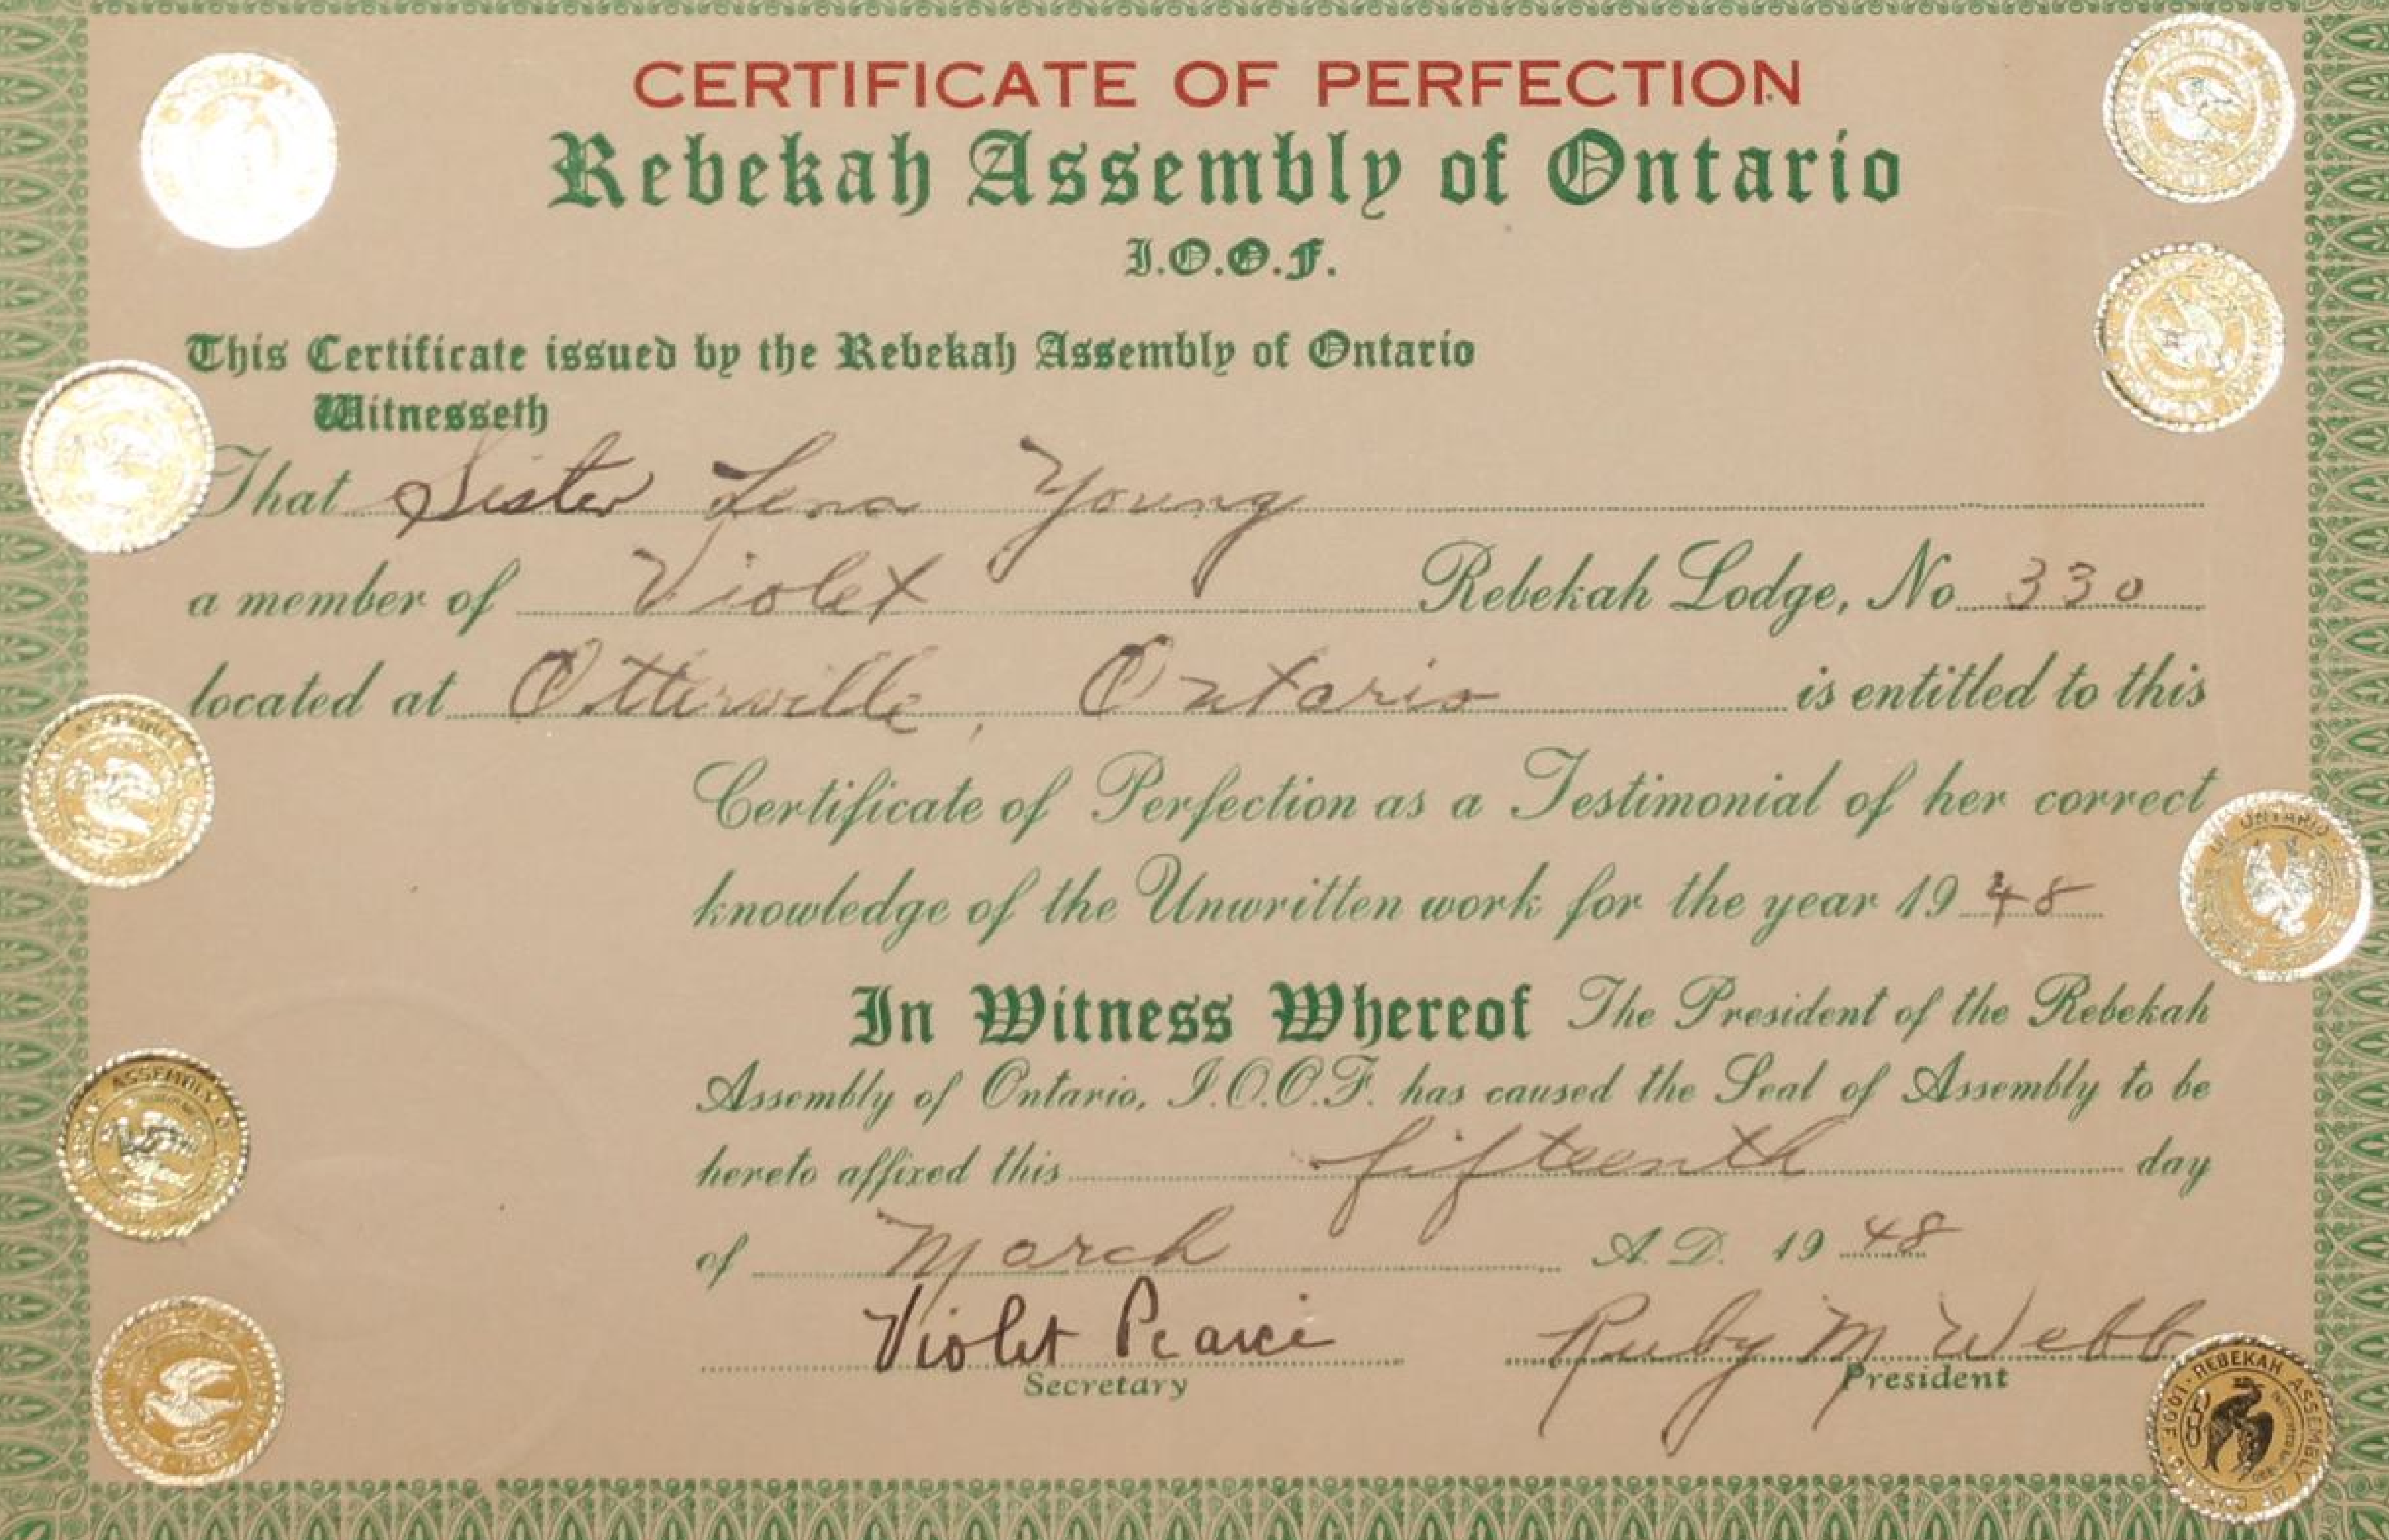 CERTIFICATE OF PERFECTION
Rebekah Assembly of Ontario
I.O.O.F.
This Certificate issued by the Rebekah Assembly of Ontario
Witnesseth
That Sister Lena Young
a member of Violet Rebekah Lodge, No 330
located at Otterville, Ontario is entitled to this
Certificate of Perfection as a Testimonial of her correct
knowledge of the Unwritten work for the year 1948
In Witness Whereof The President of the Rebekah
Assembly of Ontario, I.O.O.F. has caused the Seal of Assembly to be
hereto affixed this fifteenth day
of March A.D. 1948
Violet Pearce Ruby M Webb
Secretary President
REBEKAH ASSEMBLY OF ONTARIO I.O.O.F.